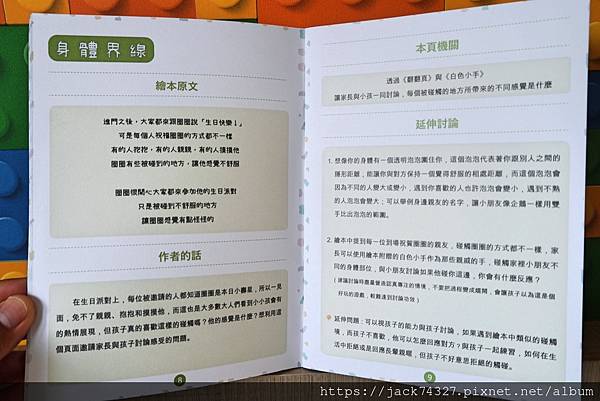 身體界線
繪本原文
進門之後，大家都來跟圈圈說「生日快樂！」
可是每個人祝福圈圈的方式都不一樣
有的人抱抱，有的人親親，有的人摸摸他
圈圈有些被碰到的地方，讓他感覺不舒服
圈圈很開心大家都來參加他的生日派對
只是被碰到不舒服的地方
讓圈圈感覺有點怪怪的
作者的話
在生日派對上，每位被邀請的人都知道圈圈是本日小壽星，所以一見
面，免不了親親、抱抱和摸摸他，而這也是大多數大人們看到小小孩會有
的熱情展現，但孩子真的喜歡這樣的碰觸嗎？他的感覺是什麼？想利用這
個頁面邀請家長與孩子討論感受的問題。
8
本頁機關
透過《翻翻頁》與《白色小手》
讓家長與小孩一同討論，每個被碰觸的地方所帶來的不同感覺是什麼
延伸討論
1. 想像你的身體有一個透明泡泡圍住你，這個泡泡代表著你跟別人之間的
隱形距離，能讓你與對方保持一個覺得舒服的相處距離，而這個泡泡會
因為不同的人變大或變小，遇到你喜歡的人也許泡泡會變小，遇到不熟
的人泡泡會變大；可以舉例身邊親友的名字，讓小朋友像企鵝一樣用雙
手比出泡泡的範圍。
2. 繪本中提到每一位到場祝賀圈圈的親友，碰觸圈圈的方式都不一樣，家
長可以使用繪本附贈的白色小手作為那些親戚的手，碰觸家裡小朋友不
同的身體部位，與小朋友討論如果他碰你這邊，你會有什麼反應？
(建議討論時盡量營造認真專注的情境，不要把過程變成嬉鬧，會讓孩子以為這是個
好玩的遊戲，較難達到討論功效)
延伸問題：可以視孩子的能力與孩子討論，如果遇到繪本中類似的碰觸
情境，而孩子不喜歡，他可以怎麼回應對方？與孩子一起練習，如何在生
活中拒絕或是回應長輩親暱，但孩子不好意思拒絕的觸碰。
9
https://jack74327.pixnet.net/album